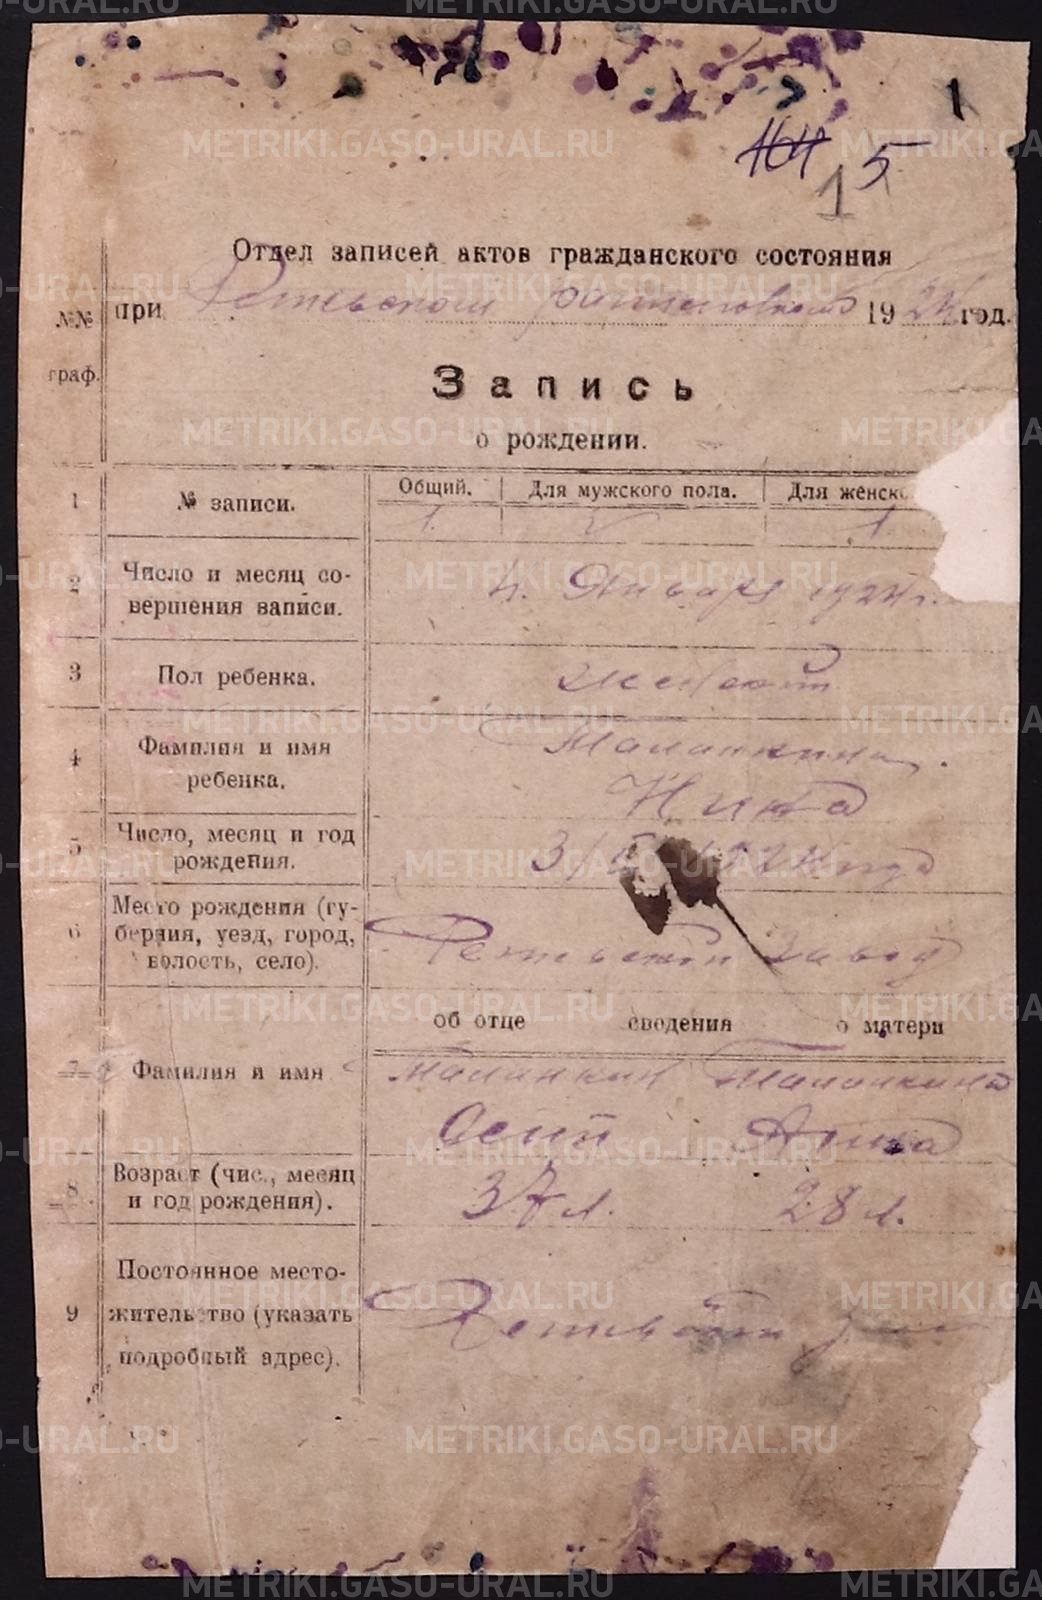 1
101
15
Отдел записей актов гражданского состояния
№№ при 1924 год.
граф.
Запись
о рождении.
1 № записи. Общий. Для мужского пола. Для женск
1. 1
2 Число и месяц со-
вершения записи. 4. Января 1924 г.
3 Пол ребенка. женский
4 Фамилия и имя
ребенка. Маланкина.
Нина
5 Число, месяц и год
рождения. 3/I 1924 года
6 Место рождения (гу-
берния, уезд, город,
волость, село). завод
об отце сведения о матери
7 Фамилия и имя Маланкин Маланкина
Осип Анна
8 Возраст (чис., месяц
и год рождения). 37 л. 28 л.
9 Постоянное место-
жительство (указать
подробный адрес).
METRIKI.GASO-URAL.RU